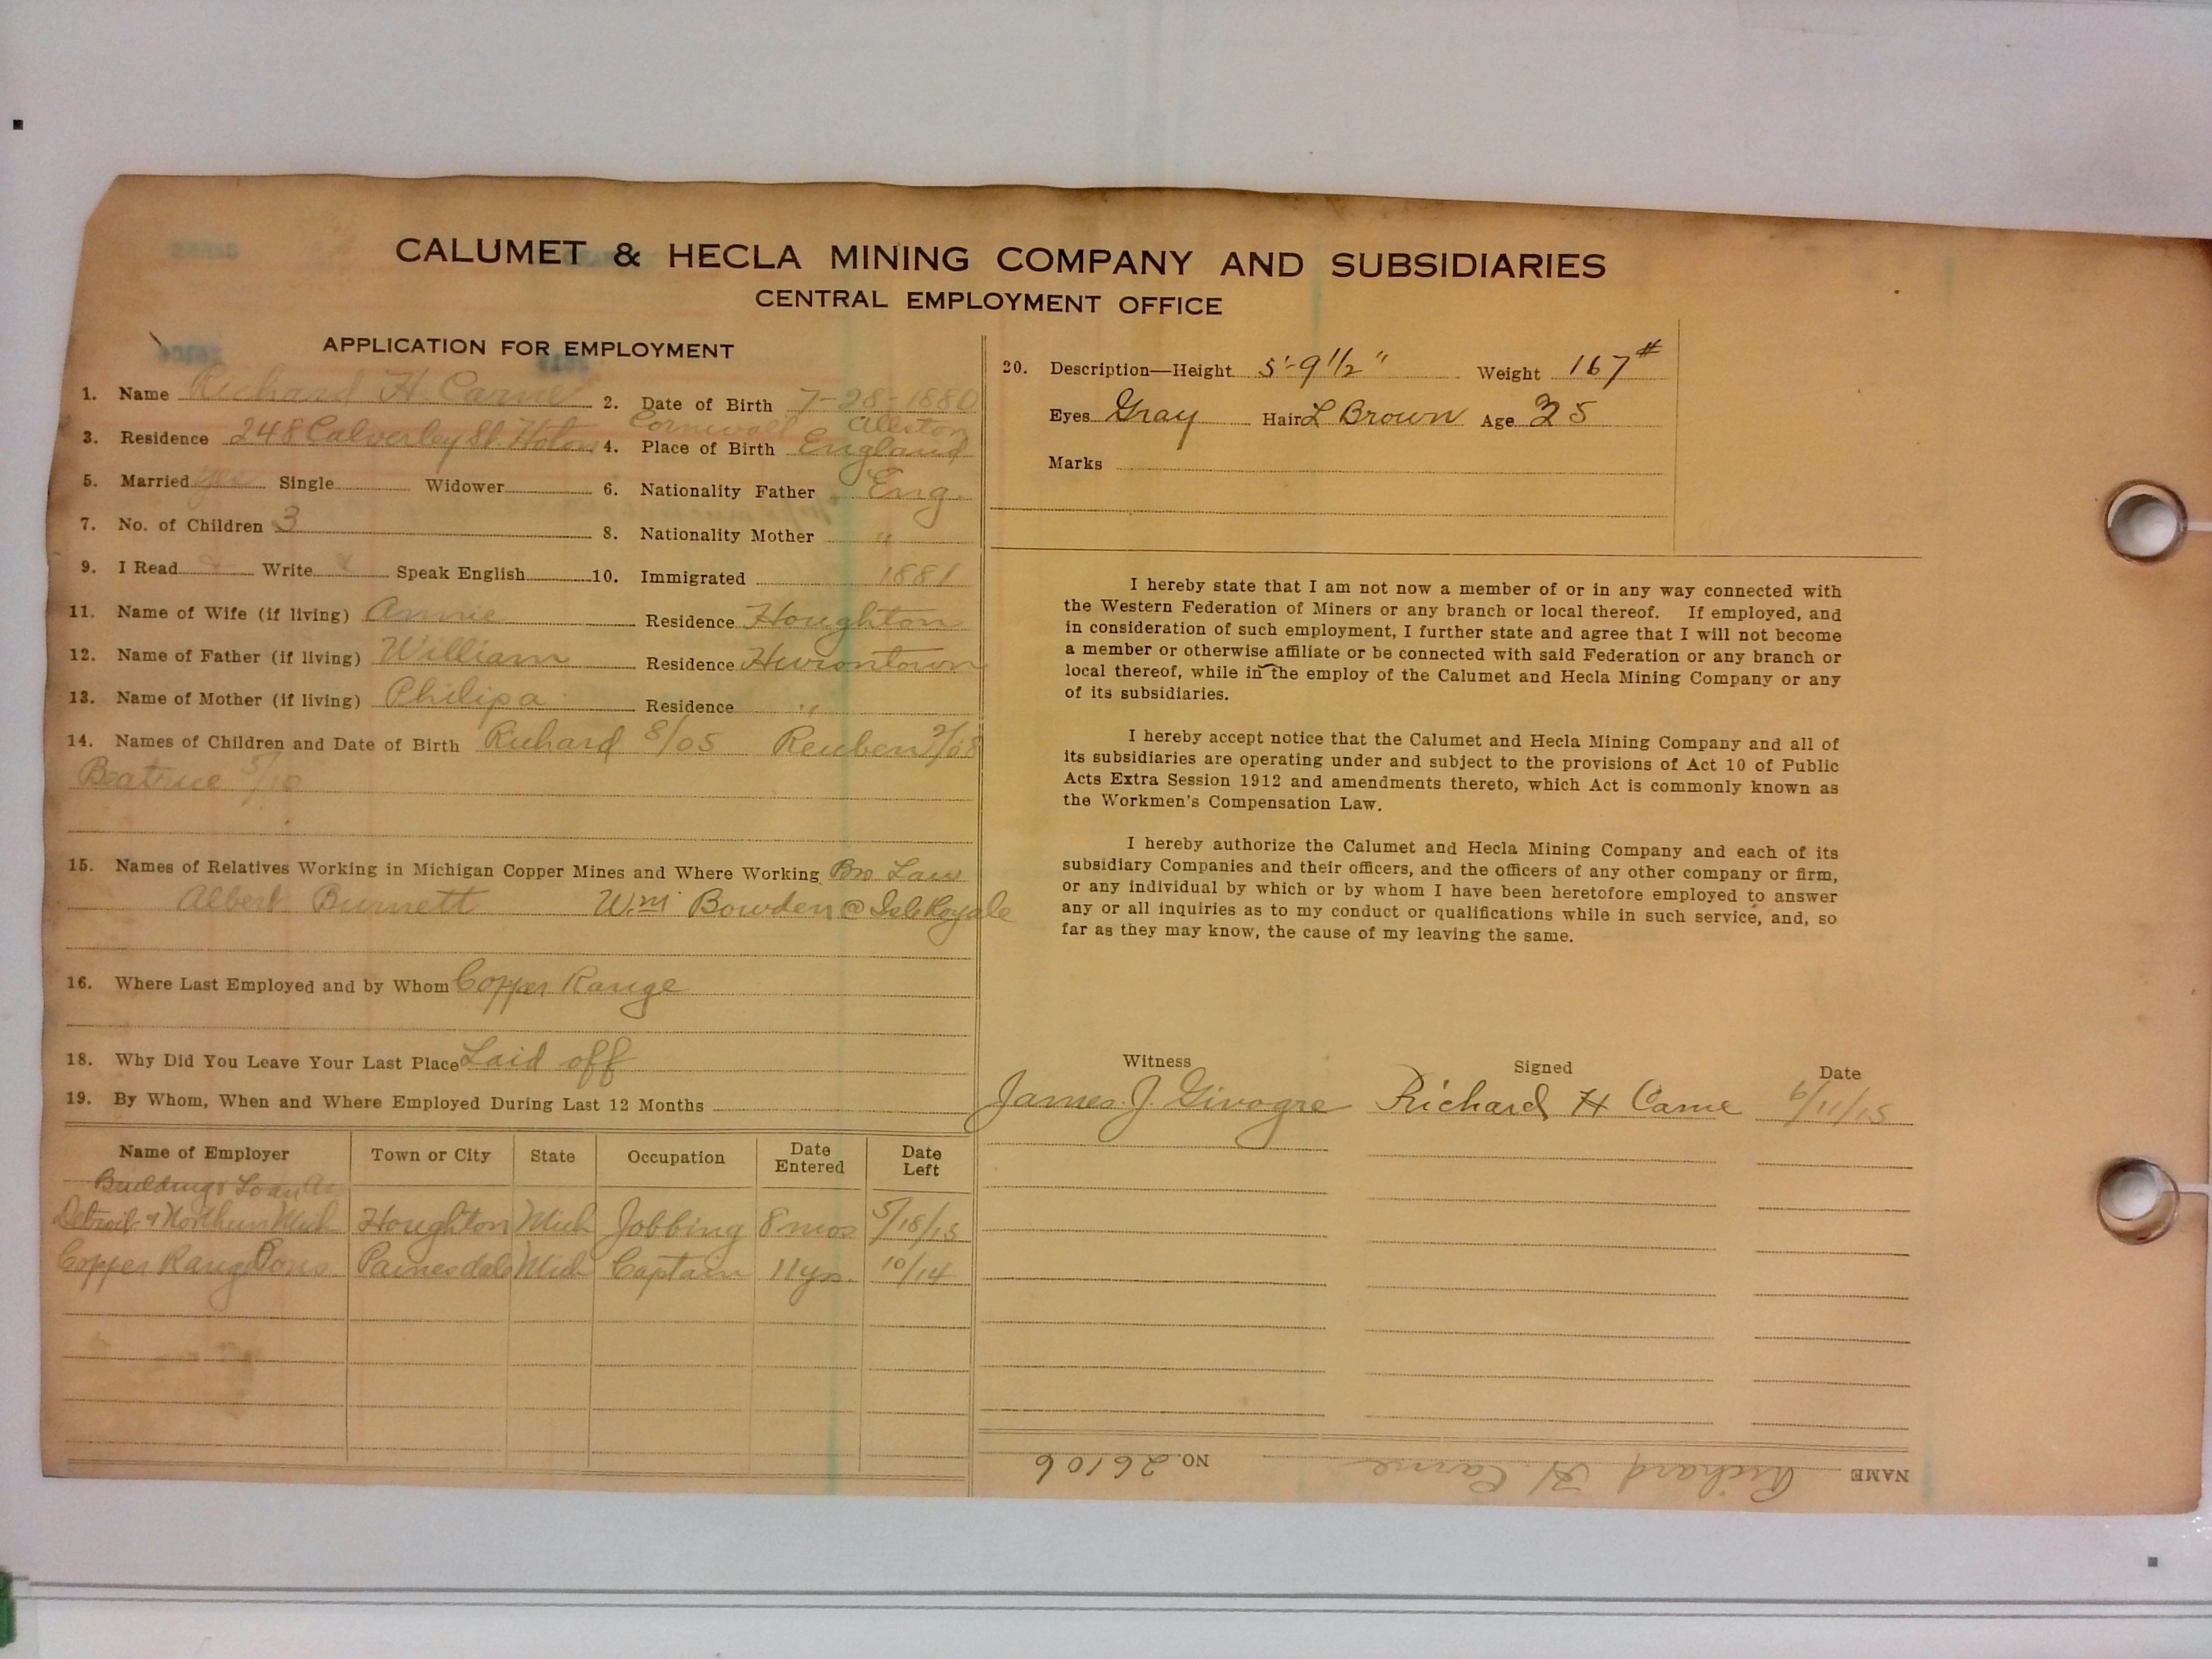 CALUMET & HECLA MINING COMPANY AND SUBSIDIARIES
CENTRAL EMPLOYMENT OFFICE
APPLICATION FOR EMPLOYMENT
1. Name Richard H. Carne 2. Date of Birth 7-28-1880
Cornwall
3. Residence 248 Calverley St. Hoton 4. Place of Birth England
5. Married yes Single Widower 6. Nationality Father Eng.
7. No. of Children 3 8. Nationality Mother "
9. I Read Write Speak English 10. Immigrated 1881
11. Name of Wife (if living) Annie Residence Houghton
12. Name of Father (if living) William Residence Hurontown
13. Name of Mother (if living) Philipa Residence "
14. Names of Children and Date of Birth Richard 8/05 Reuben 2/08
Beatrice 5/10
15. Names of Relatives Working in Michigan Copper Mines and Where Working Bro Law
Albert Burnett Wm Bowden @ Isle Royale
16. Where Last Employed and by Whom Copper Range
18. Why Did You Leave Your Last Place Laid off
19. By Whom, When and Where Employed During Last 12 Months
Name of Employer Town or City State Occupation Date Entered Date Left
Building & Loan
Detroit & Northern Mich Houghton Mich Jobbing 8 mos 5/18/15
Copper Range Cons Painesdale Mich Captain 11 yrs. 10/14
20. Description—Height 5'-9 1/2" Weight 167#
Eyes Gray Hair L Brown Age 35
Marks
I hereby state that I am not now a member of or in any way connected with
the Western Federation of Miners or any branch or local thereof. If employed, and
in consideration of such employment, I further state and agree that I will not become
a member or otherwise affiliate or be connected with said Federation or any branch or
local thereof, while in the employ of the Calumet and Hecla Mining Company or any
of its subsidiaries.
I hereby accept notice that the Calumet and Hecla Mining Company and all of
its subsidiaries are operating under and subject to the provisions of Act 10 of Public
Acts Extra Session 1912 and amendments thereto, which Act is commonly known as
the Workmen's Compensation Law.
I hereby authorize the Calumet and Hecla Mining Company and each of its
subsidiary Companies and their officers, and the officers of any other company or firm,
or any individual by which or by whom I have been heretofore employed to answer
any or all inquiries as to my conduct or qualifications while in such service, and, so
far as they may know, the cause of my leaving the same.
Witness Signed Date
James J. Richard H Carne 6/11/15
NAME Richard H. Carne NO. 26106